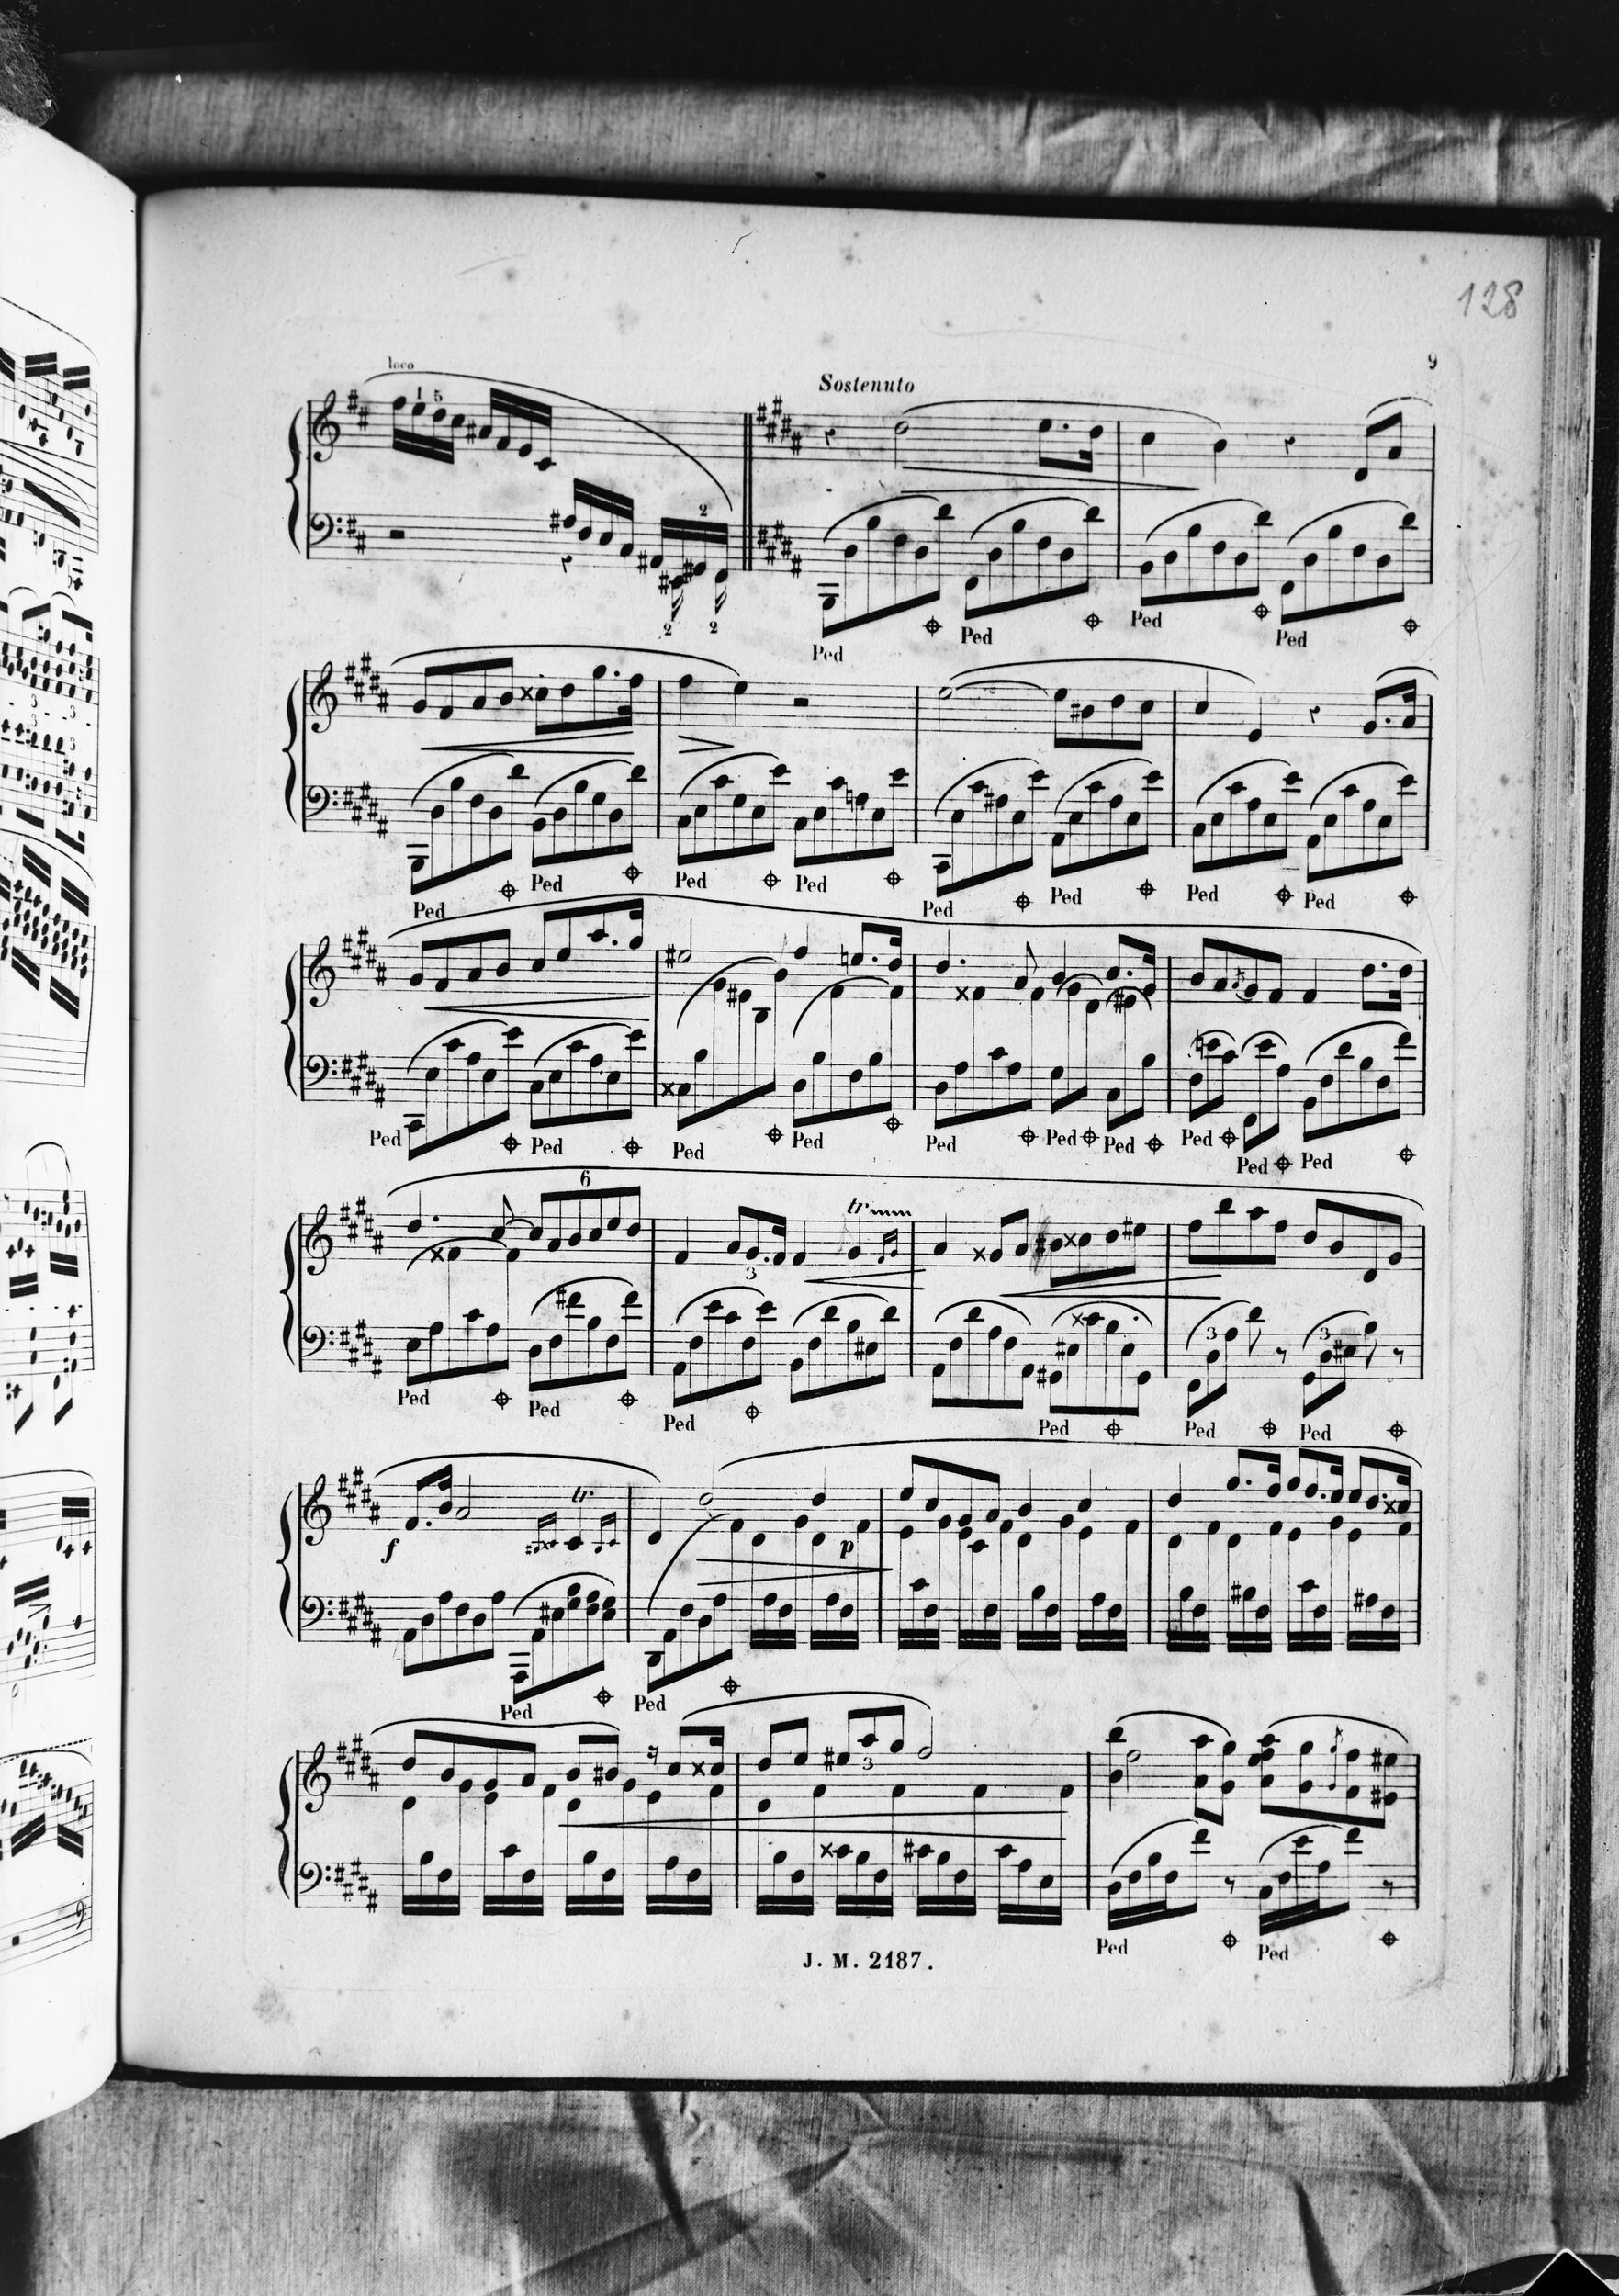 128
9
loco
1 5
Sostenuto
2
2 2
Ped Ped Ped Ped
Ped Ped Ped Ped Ped Ped Ped Ped
Ped Ped Ped Ped Ped Ped Ped Ped Ped Ped
6
tr
3
3 3
Ped Ped Ped Ped Ped Ped
tr
f
p
Ped Ped
3
Ped Ped
J. M. 2187.